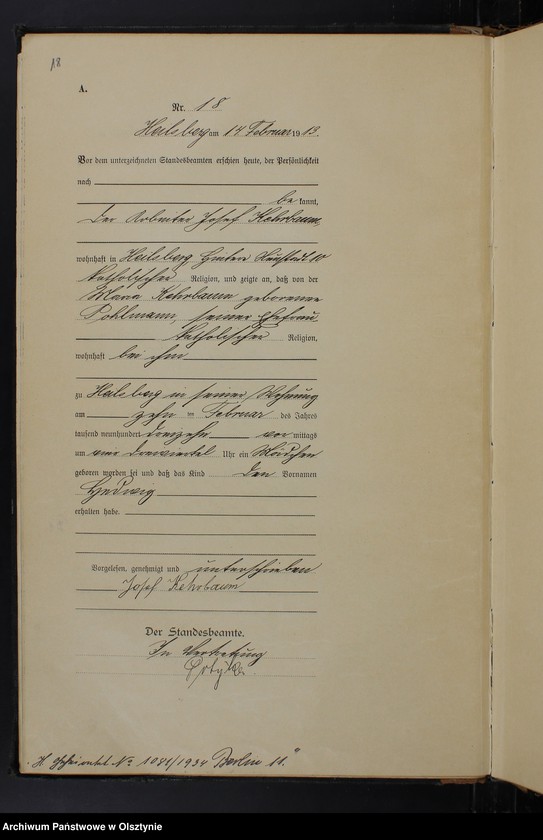 18
A.
Nr. 18
Heilsberg am 14 Februar 1913.
Vor dem unterzeichneten Standesbeamten erschien heute, der Persönlichkeit
nach
be kannt,
der Arbeiter Josef Kehrbaum,
wohnhaft in Heilsberg, Hintere Neustadt 10
katholischer Religion, und zeigte an, daß von der
Maria Kehrbaum geborenen
Pohlmann, seiner Ehefrau,
katholischer Religion,
wohnhaft bei ihm
zu Heilsberg in seiner Wohnung
am zehn ten Februar des Jahres
tausend neunhundert dreizehn vor mittags
um vier dreiviertel Uhr ein Mädchen
geboren worden sei und daß das Kind den Vornamen
Hedwig
erhalten habe.
Vorgelesen, genehmigt und unterschrieben
Josef Kehrbaum
Der Standesbeamte.
In Vertretung
H. geheiratet No 1081/1934 Berlin 11.
Archiwum Państwowe w Olsztynie